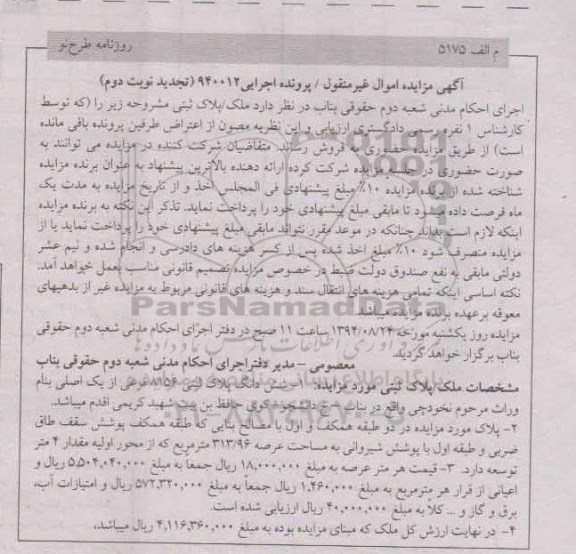 م الف ۵۱۷۵
روزنامه طرح‌نو
آگهی مزایده اموال غیرمنقول / پرونده اجرایی۹۴۰۰۱۲ (تجدید نوبت دوم)
اجرای احکام مدنی شعبه دوم حقوقی بناب در نظر دارد ملک/پلاک ثبتی مشروحه زیر را (که توسط
کارشناس ۱ نفره رسمی دادگستری ارزیابی و این نظریه مصون از اعتراض طرفین پرونده باقی مانده
است) از طریق مزایده حضوری به فروش رساند. متقاضیان شرکت کننده در مزایده می توانند به
صورت حضوری در جلسه مزایده شرکت کرده ارائه دهنده بالاترین پیشنهاد به عنوان برنده مزایده
شناخته شده از برنده مزایده ۱۰٪ مبلغ پیشنهادی فی المجلس اخذ و از تاریخ مزایده به مدت یک
ماه فرصت داده میشود تا مابقی مبلغ پیشنهادی خود را پرداخت نماید. تذکر این نکته به برنده مزایده
اینکه لازم است بداند چنانکه در موعد مقرر نتواند مابقی مبلغ پیشنهادی خود را پرداخت نماید یا از
مزایده منصرف شود ۱۰٪ مبلغ اخذ شده پس از کسر هزینه های دادرسی و انجام شده و نیم عشر
دولتی مابقی به نفع صندوق دولت ضبط در خصوص مزایده تصمیم قانونی مناسب بعمل خواهد آمد.
نکته اساسی اینکه تمامی هزینه های انتقال سند و هزینه های قانونی مربوط به مزایده غیر از بدهیهای
معوقه برعهده برنده مزایده میباشد.
مزایده روز یکشنبه مورخه ۱۳۹۴/۰۸/۲۴ ساعت ۱۱ صبح در دفتر اجرای احکام مدنی شعبه دوم حقوقی
بناب برگزار خواهد گردید.
معصومی – مدیر دفتراجرای احکام مدنی شعبه دوم حقوقی بناب
مشخصات ملک/پلاک ثبتی مورد مزایده: ۱- شش دانگ پلاک ثبتی ۸۱۵۶ فرعی از یک اصلی بنام
وراث مرحوم نخودچی واقع در بناب کوی حافظ بن بست شهید کریمی اقدم میباشد.
۲- پلاک مورد مزایده در دو طبقه همکف و اول با مصالح بنایی که طبقه همکف پوشش سقف طاق
ضربی و طبقه اول با پوشش شیروانی به مساحت عرصه ۳۱۳/۹۶ مترمربع که از محور اولیه مقدار ۴ متر
توسعه دارد. ۳- قیمت هر متر عرصه به مبلغ ۱۸,۰۰۰,۰۰۰ ریال جمعاً به مبلغ ۵,۵۰۴,۰۴۰,۰۰۰ ریال و
اعیانی از قرار هر مترمربع به مبلغ ۱,۴۶۰,۰۰۰ ریال جمعاً به مبلغ ۵۷۲,۳۲۰,۰۰۰ ریال و امتیازات آب،
برق و گاز و ... کلاً به مبلغ ۴۰,۰۰۰,۰۰۰ ریال ارزیابی شده است.
۴- در نهایت ارزش کل ملک که مبنای مزایده بوده به مبلغ ۴,۱۱۶,۳۶۰,۰۰۰ ریال میباشد.
ParsNamadData